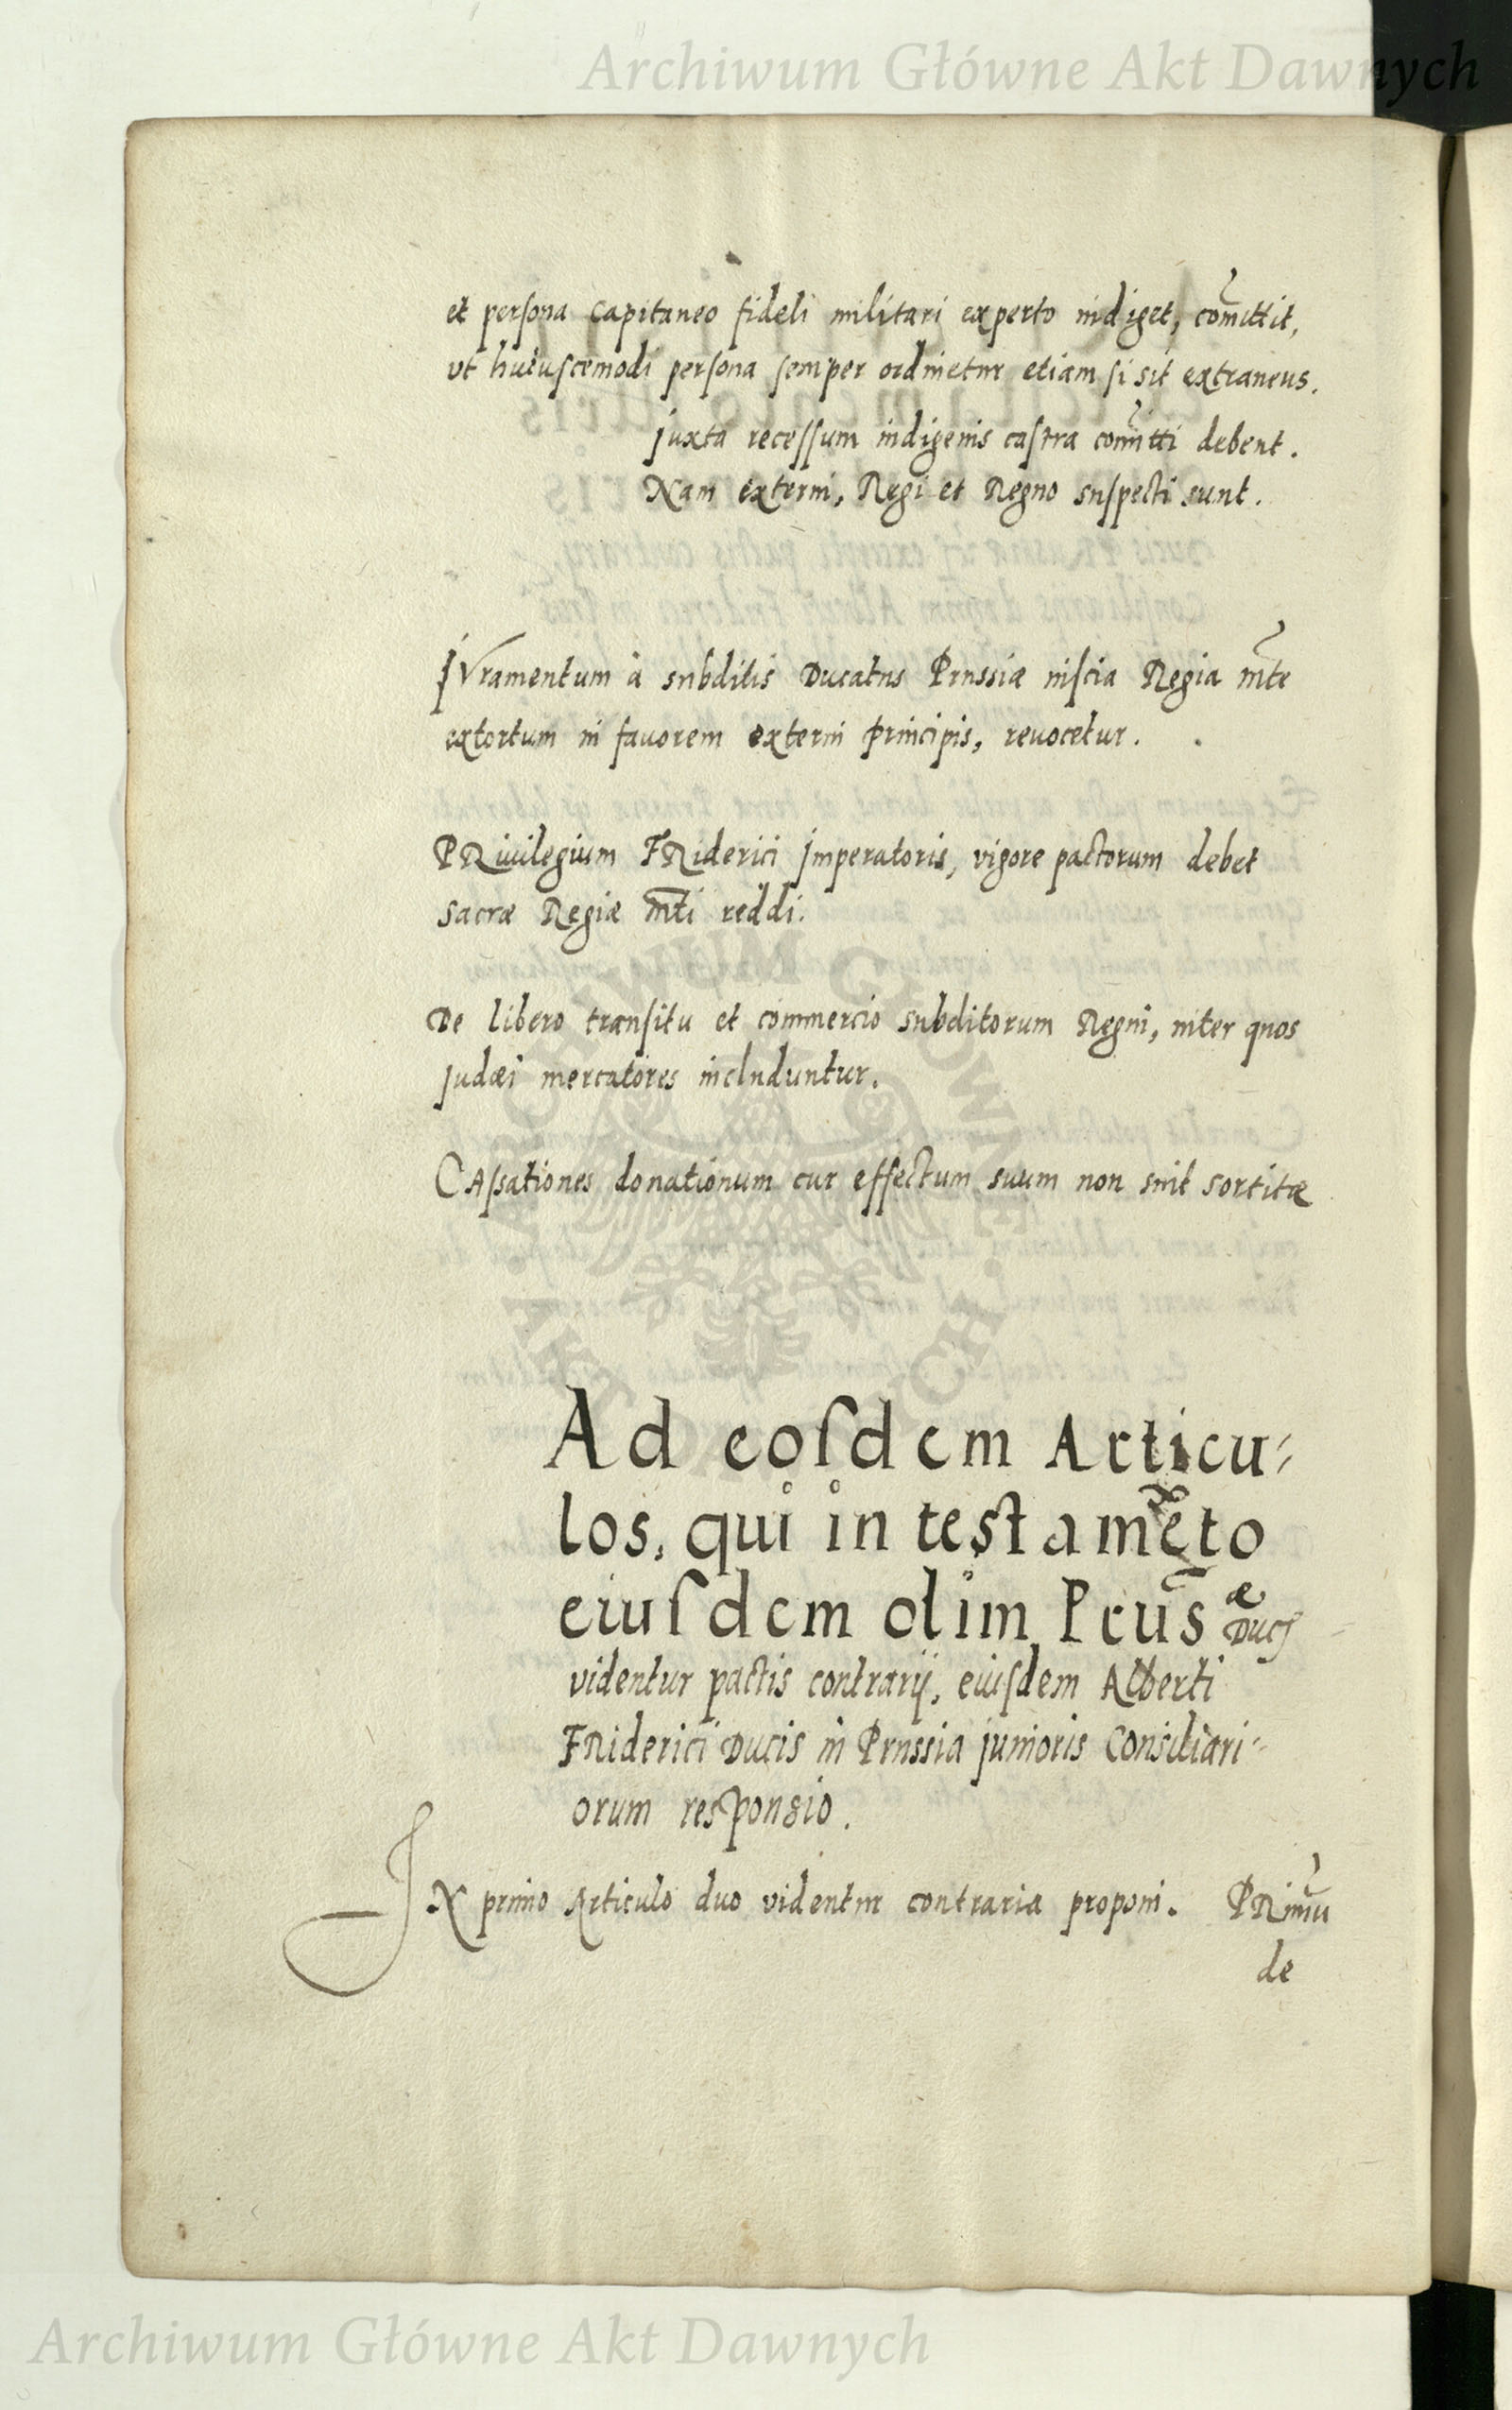 Archiwum Główne Akt Dawnych
et persona Capitaneo fideli militari experto indiget, com̃ittit,
vt huiuscemodi persona semper ordinetur etiam si sit extraneus.
Juxta recessum indigenis castra com̃itti debent.
Nam externi, Regi et Regno suspecti sunt.
JVramentum à subditis Ducatus Prussiæ inscia Regia m̃te
extortum in fauorem externi Principis, reuocetur.
PRiuilegium FRiderici Jmperatoris, vigore pactorum debet
Sacræ Regiæ m̃ti reddi.
De libero transitu et commercio subditorum Regni, inter quos
Judæi mercatores includuntur.
CAssationes donationum cur effectum suum non sint sortitæ
Ad eosdem Articu-
los, qui in testamẽto
eiusdem olim Prũs æ Ducis
videntur pactis contrarij, eiusdem Alberti
FRiderici Ducis in Prussia junioris Consiliari-
orum responsio.
JN primo Articulo duo videntur contraria proponi. PRimũ
de
ARCHIWUM GŁÓWNE AKT DAWNYCH
Archiwum Główne Akt Dawnych